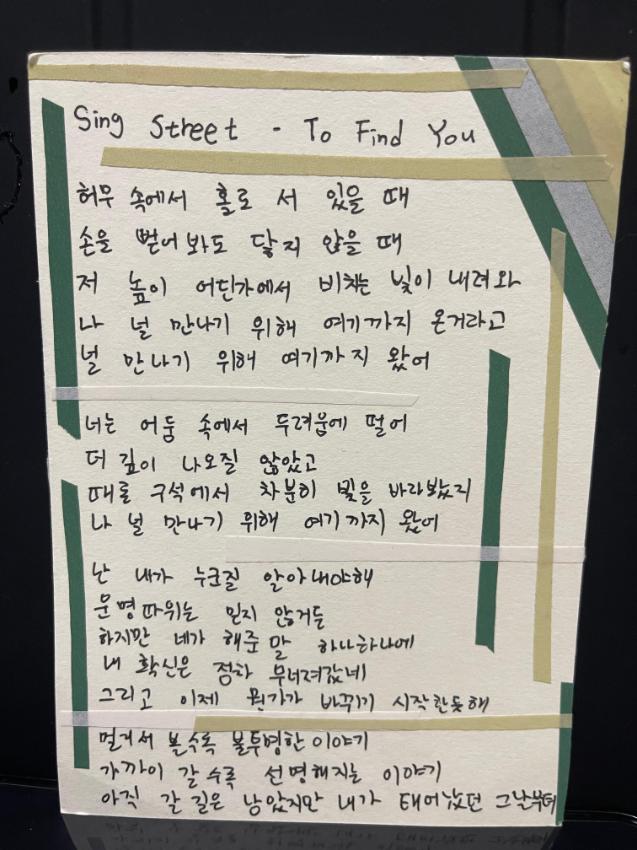 Sing Street - To Find You
허무 속에서 홀로 서 있을 때
손을 뻗어봐도 닿지 않을 때
저 높이 어딘가에서 비치는 빛이 내려와
나 널 만나기 위해 여기까지 온거라고
널 만나기 위해 여기까지 왔어
너는 어둠 속에서 두려움에 떨어
더 깊이 나오질 않았고
때론 구석에서 차분히 빛을 바라봤지
나 널 만나기 위해 여기까지 왔어
난 내가 누군질 알아내야해
운명따위는 믿지 않거든
하지만 네가 해준 말 하나하나에
내 확신은 점차 무너져갔네
그리고 이제 뭔가가 바뀌기 시작한듯해
멀거서 볼수록 불투명한 이야기
가까이 갈수록 선명해지는 이야기
아직 갈 길은 남았지만 내가 태어났던 그날부터